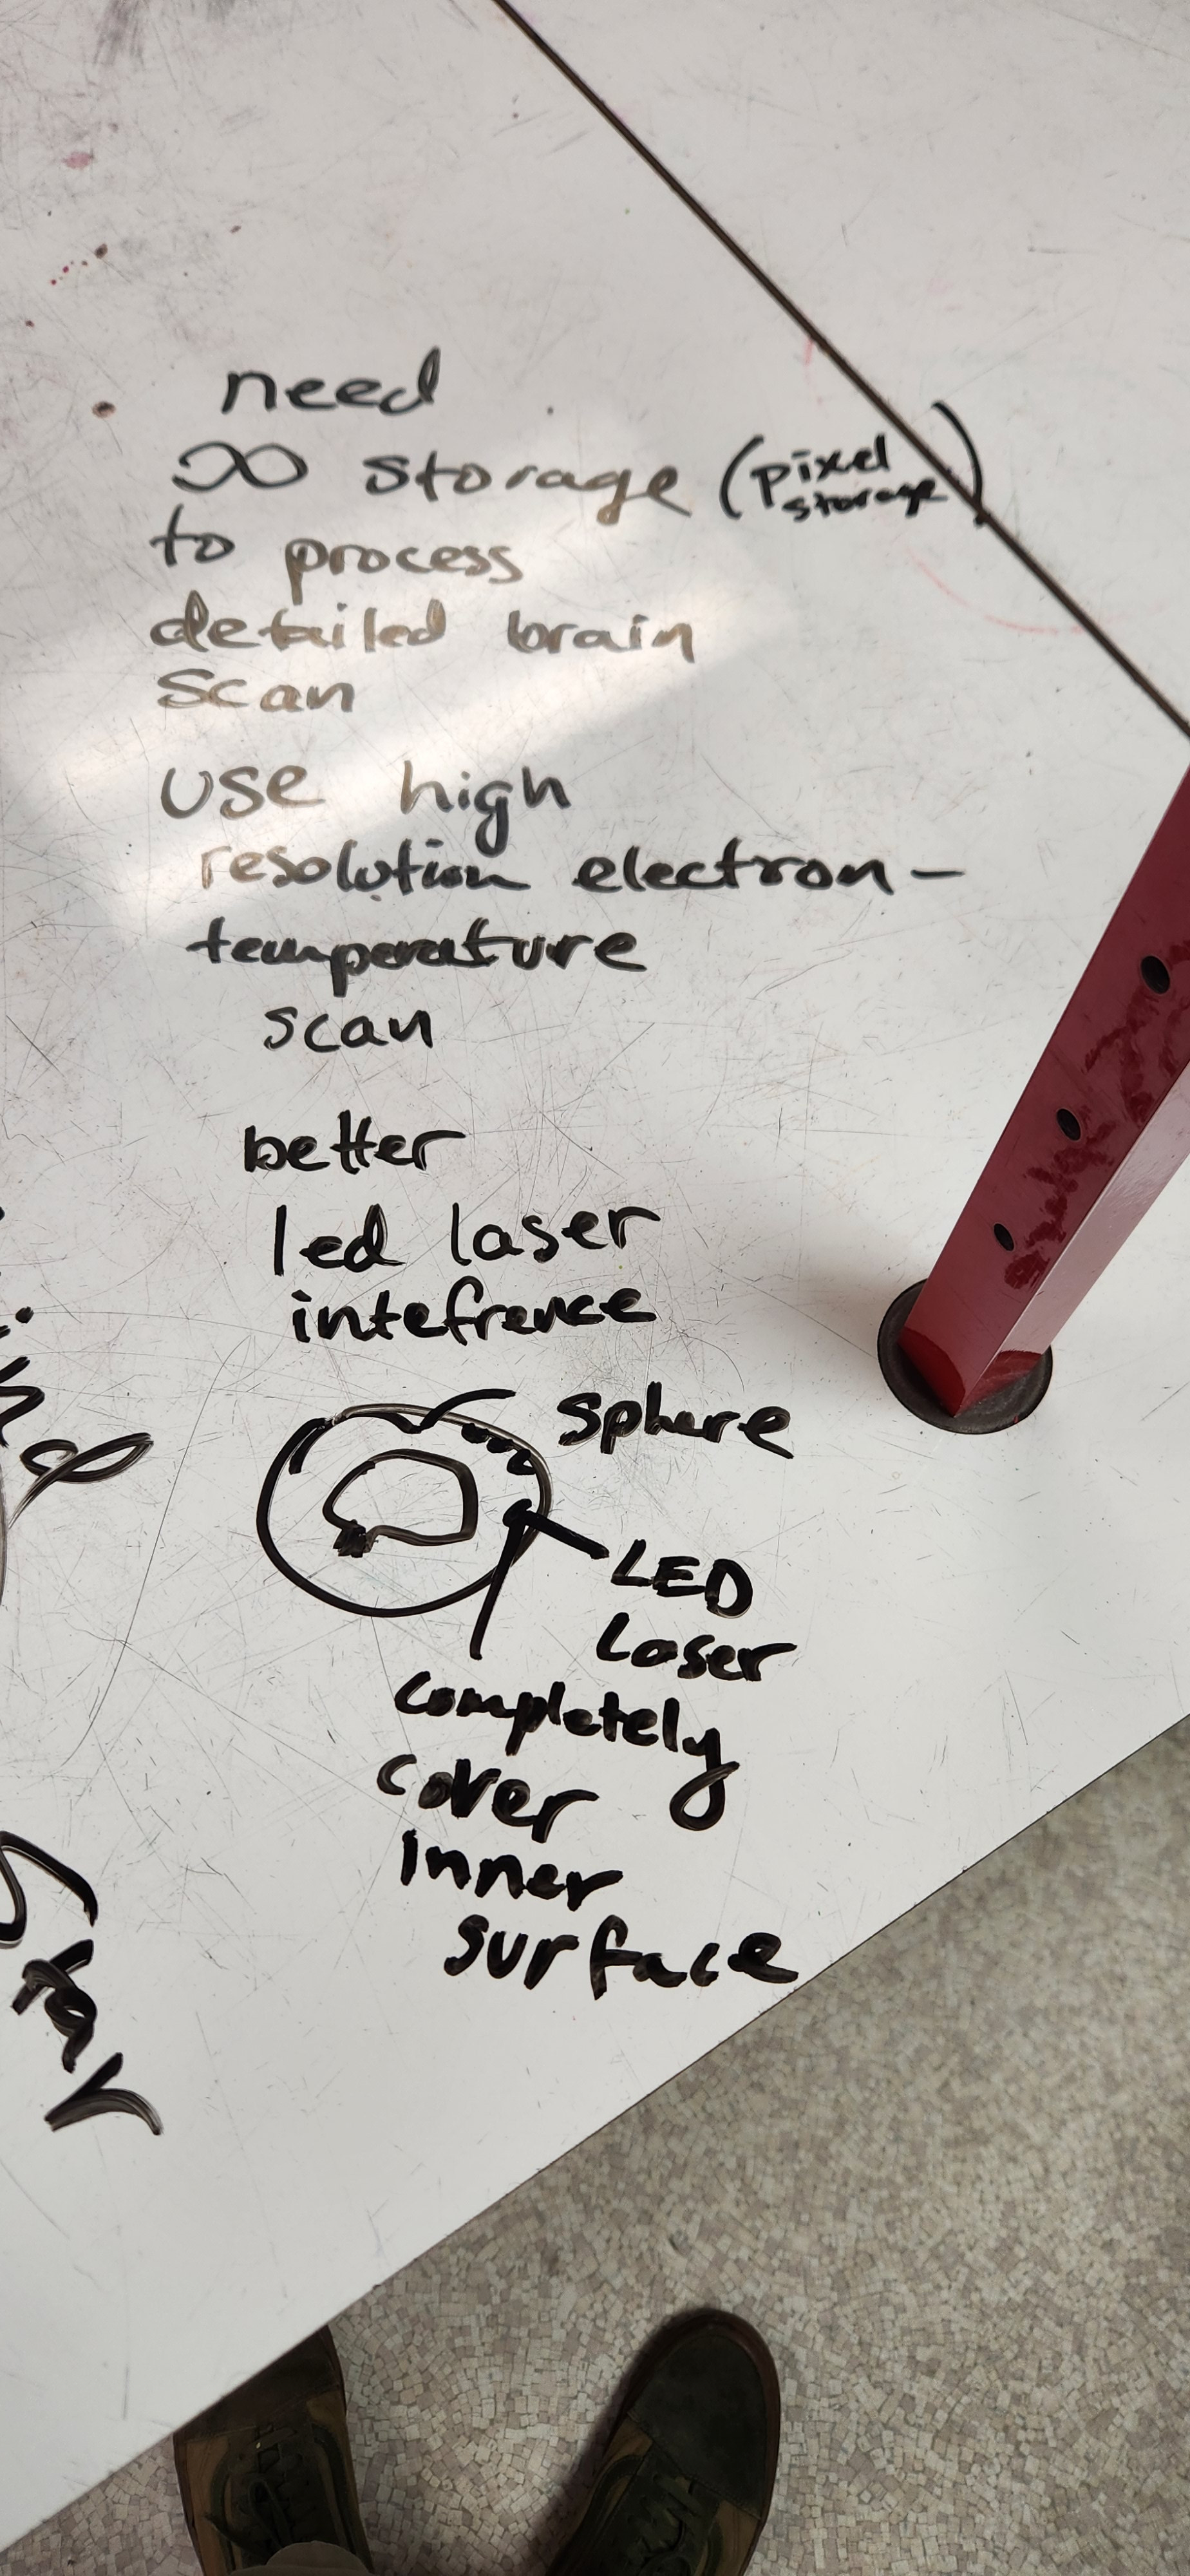 need
∞ storage (pixel storage)
to process
detailed brain
scan
use high
resolution electron-
temperature
scan
better
led laser
intefrence
sphere
LED
Laser
completely
cover
inner
surface